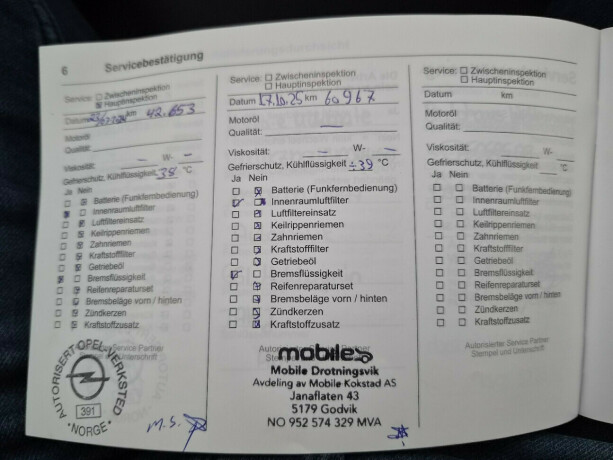 6 Servicebestätigung
Service: Zwischeninspektion
Hauptinspektion
Datum km 42.653
Motoröl
Qualität:
Viskosität: - W- -
Gefrierschutz, Kühlflüssigkeit -38 °C
Ja Nein
Batterie (Funkfernbedienung)
Innenraumluftfilter
Luftfiltereinsatz
Keilrippenriemen
Zahnriemen
Kraftstofffilter
Getriebeöl
Bremsflüssigkeit
Reifenreparaturset
Bremsbeläge vorn / hinten
Zündkerzen
Kraftstoffzusatz
AUTORISERT OPEL VERKSTED
391
NORGE
M.S.
Service: Zwischeninspektion
Hauptinspektion
Datum 17.10.25 km 60967
Motoröl
Qualität: -
Viskosität: - W- -
Gefrierschutz, Kühlflüssigkeit ÷39 °C
Ja Nein
Batterie (Funkfernbedienung)
Innenraumluftfilter
Luftfiltereinsatz
Keilrippenriemen
Zahnriemen
Kraftstofffilter
Getriebeöl
Bremsflüssigkeit
Reifenreparaturset
Bremsbeläge vorn / hinten
Zündkerzen
Kraftstoffzusatz
mobile
Mobile Drotningsvik
Avdeling av Mobile Kokstad AS
Janaflaten 43
5179 Godvik
NO 952 574 329 MVA
Service: Zwischeninspektion
Hauptinspektion
Datum km
Motoröl
Qualität:
Viskosität: W-
Gefrierschutz, Kühlflüssigkeit °C
Ja Nein
Batterie (Funkfernbedienung)
Innenraumluftfilter
Luftfiltereinsatz
Keilrippenriemen
Zahnriemen
Kraftstofffilter
Getriebeöl
Bremsflüssigkeit
Reifenreparaturset
Bremsbeläge vorn / hinten
Zündkerzen
Kraftstoffzusatz
Autorisierter Service Partner
Stempel und Unterschrift